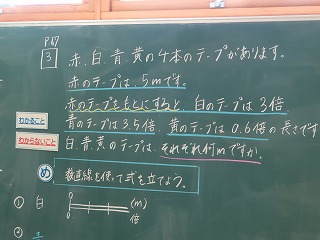 P.67
3
赤、白、青、黄の4本のテープがあります。
赤のテープは、5mです。
赤のテープをもとにすると、白のテープは3倍
わかること
青のテープは3.5倍、黄のテープは0.6倍の長さです
わからないこと
白、青、黄のテープは、それぞれ何mですか。
め
数直線を使って式を立てよう。
① 白
0
(m)
0
倍
②